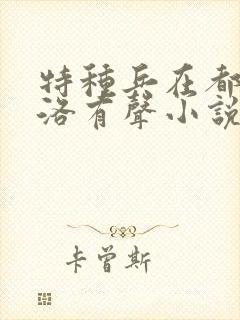 特種兵在都
洛有聲小說
卡曾斯